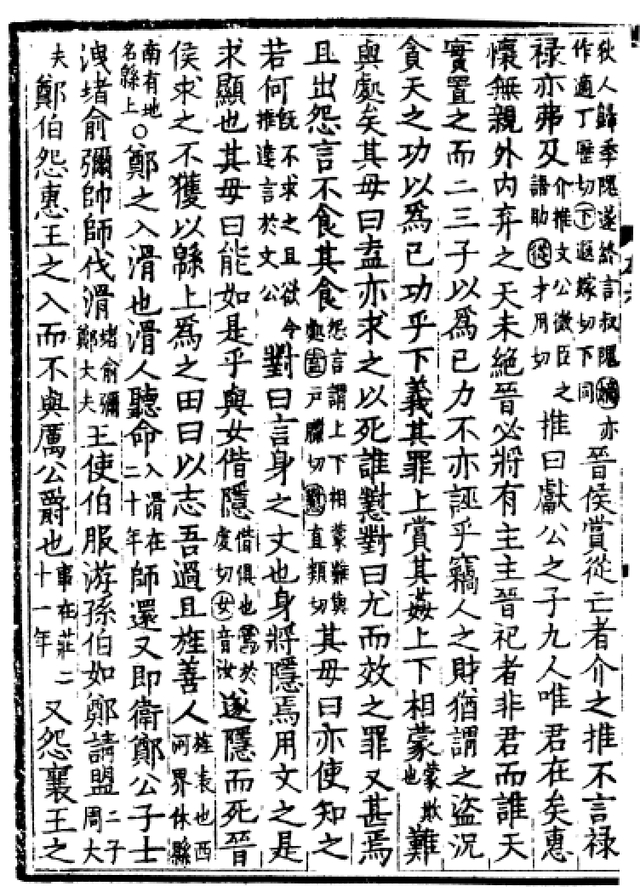 狄人歸季隗遂終言叔隗嫡亦作適丁歷切下遐嫁切下同晉侯賞從亡者介之推不言祿
祿亦弗及介推文公微臣之語助從才用切推曰獻公之子九人唯君在矣惠
懷無親外内弃之天未絶晉必將有主主晉祀者非君而誰天
實置之而二三子以爲己力不亦誣乎竊人之財猶謂之盗況
貪天之功以爲己功乎下義其罪上賞其姦上下相蒙蒙欺也難
與處矣其母曰盍亦求之以死誰懟對曰尤而效之罪又甚焉
且出怨言不食其食怨言謂上下相蒙難與處盍戶臘切懟直類切其母曰亦使知之
若何旣不求之且欲令推達言於文公對曰言身之文也身將隱焉用文之是
求顯也其母曰能如是乎與女偕隱偕俱也焉於虔切女音汝遂隱而死晉
侯求之不獲以緜上爲之田曰以志吾過且旌善人旌表也西河界休縣
南有地名緜上○鄭之入滑也滑人聽命入滑在二十年師還又即衛鄭公子士
洩堵俞彌帥師伐滑堵俞彌鄭大夫王使伯服游孫伯如鄭請盟二子周大
夫鄭伯怨惠王之入而不與厲公爵也事在莊二十一年又怨襄王之